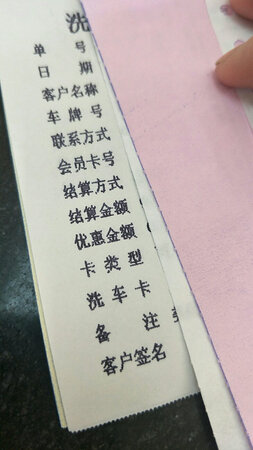 洗
单 号
日 期
客户名称
车 牌 号
联系方式
会员卡号
结算方式
结算金额
优惠金额
卡 类 型
洗 车 卡
备 注
客户签名